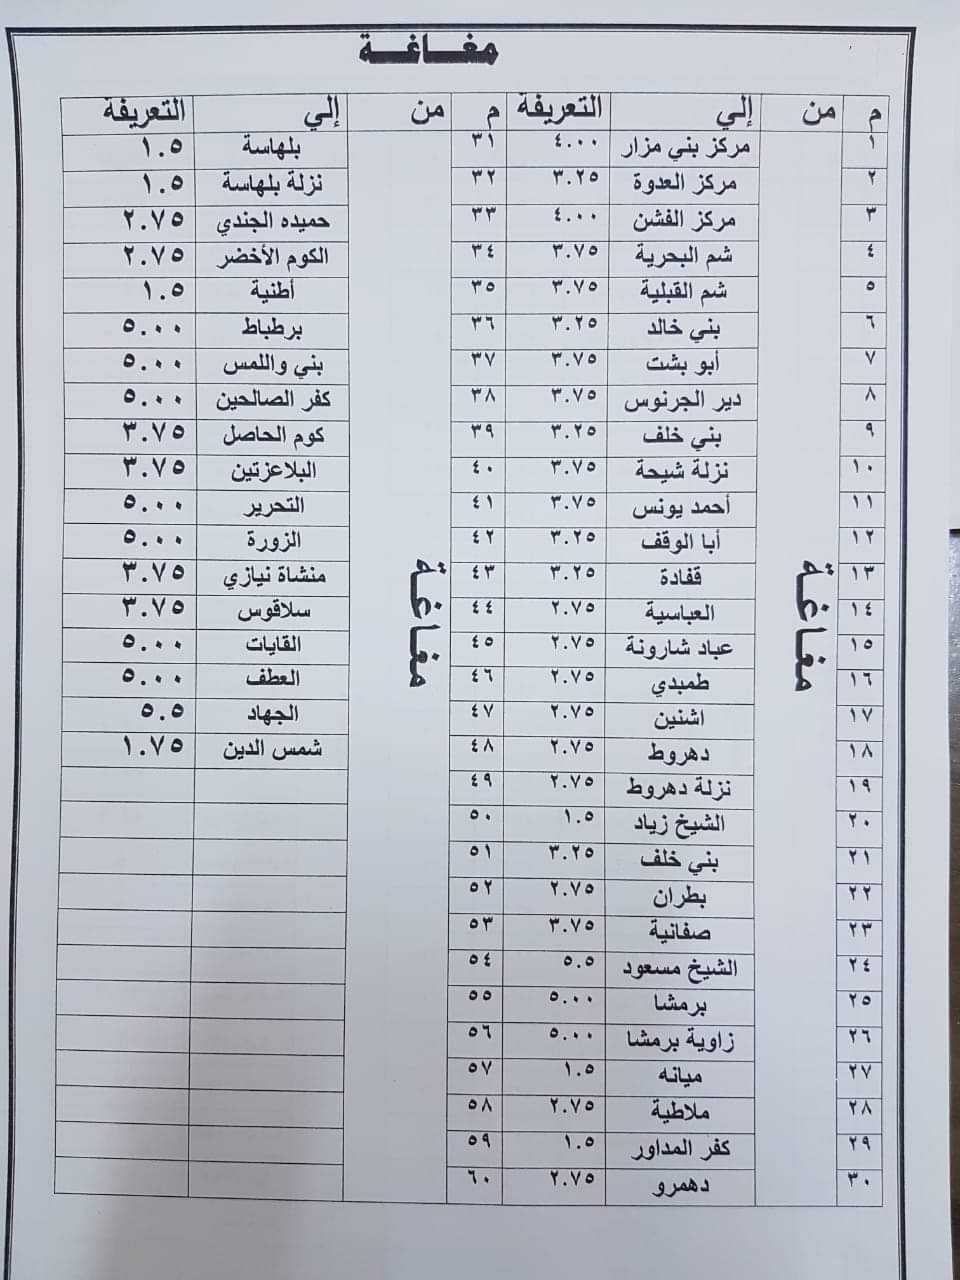 مغـــاغـــة
م من إلي التعريفة م من إلي التعريفة
١ مركز بني مزار ٤.٠٠ ٣١ بلهاسة ١.٥
٢ مركز العدوة ٣.٢٥ ٣٢ نزلة بلهاسة ١.٥
٣ مركز الفشن ٤.٠٠ ٣٣ حميده الجندي ٢.٧٥
٤ شم البحرية ٣.٧٥ ٣٤ الكوم الأخضر ٢.٧٥
٥ شم القبلية ٣.٧٥ ٣٥ أطنية ١.٥
٦ بني خالد ٣.٢٥ ٣٦ برطباط ٥.٠٠
٧ أبو بشت ٣.٧٥ ٣٧ بني واللمس ٥.٠٠
٨ دير الجرنوس ٣.٧٥ ٣٨ كفر الصالحين ٥.٠٠
٩ بني خلف ٣.٢٥ ٣٩ كوم الحاصل ٣.٧٥
١٠ نزلة شيحة ٣.٧٥ ٤٠ البلاعزتين ٣.٧٥
١١ أحمد يونس ٣.٧٥ ٤١ التحرير ٥.٠٠
١٢ أبا الوقف ٣.٢٥ ٤٢ الزورة ٥.٠٠
١٣ مغـاغـة قفادة ٣.٢٥ ٤٣ مغـاغـة منشاة نيازي ٣.٧٥
١٤ العباسية ٢.٧٥ ٤٤ سلاقوس ٣.٧٥
١٥ عباد شارونة ٢.٧٥ ٤٥ القايات ٥.٠٠
١٦ طمبدي ٢.٧٥ ٤٦ العطف ٥.٠٠
١٧ اشنين ٢.٧٥ ٤٧ الجهاد ٥.٥
١٨ دهروط ٢.٧٥ ٤٨ شمس الدين ١.٧٥
١٩ نزلة دهروط ٢.٧٥ ٤٩
٢٠ الشيخ زياد ١.٥ ٥٠
٢١ بني خلف ٣.٢٥ ٥١
٢٢ بطران ٢.٧٥ ٥٢
٢٣ صفانية ٣.٧٥ ٥٣
٢٤ الشيخ مسعود ٥.٥ ٥٤
٢٥ برمشا ٥.٠٠ ٥٥
٢٦ زاوية برمشا ٥.٠٠ ٥٦
٢٧ ميانه ١.٥ ٥٧
٢٨ ملاطية ٢.٧٥ ٥٨
٢٩ كفر المداور ١.٥ ٥٩
٣٠ دهمرو ٢.٧٥ ٦٠